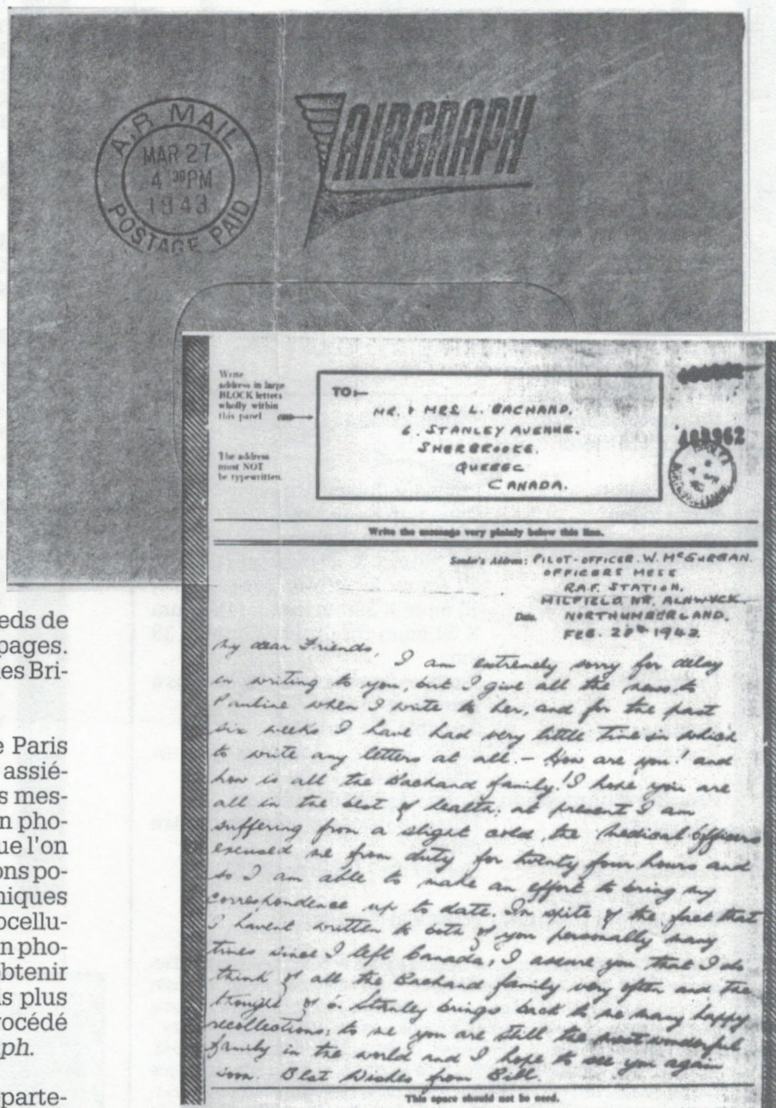 AIR MAIL
MAR 27
4 30 PM
1943
POSTAGE PAID
AIRGRAPH
Write
address in large
BLOCK letters
wholly within
this panel
The address
must NOT
be typewritten.
TO:—
MR. & MRS L. BACHAND,
6. STANLEY AVENUE.
SHERBROOKE.
QUEBEC
CANADA.
Write the message very plainly below this line.
Sender's Address: PILOT-OFFICER. W. McGURGAN.
OFFICERS MESS
R.A.F. STATION,
MILFIELD NR. ALNWYCK.
Date NORTHUMBERLAND.
FEB. 20th 1943.
My dear Friends,
I am extremely sorry for delay
in writing to you, but I give all the news to
Pauline when I write to her, and for the past
six weeks I have had very little time in which
to write any letters at all. – How are you! and
how is all the Bachand family! I hope you are
all in the best of health; at present I am
suffering from a slight cold, the Medical Officers
excused me from duty for twenty four hours and
so I am able to make an effort to bring my
correspondence up to date. In spite of the fact that
I havent written to both of you personally many
times since I left Canada; I assure you that I do
think of all the Bachand family very often and the
thought of 6. Stanley brings back to me many happy
recollections; to me you are still the most wonderful
family in the world and I hope to see you again
soon. Best Wishes from Bill.
This space should not be need.
eds de
pages.
es Bri-
e Paris
assié-
s mes-
n pho-
ue l'on
ons po-
niques
ocellu-
n pho-
btenir
s plus
rocédé
ph.
parte-